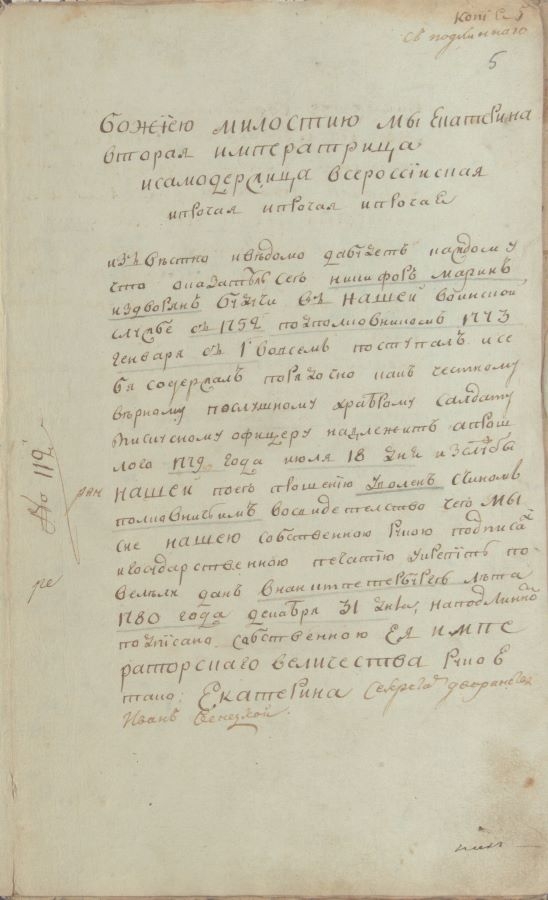 копiе 5
съ подлиннаго
5
Божiею милостiю мы Екатерина
вторая императрица
исамодержица всероссiиская
ипрочая ипрочая ипрочая
извѣстно ивѣдомо дабудетъ каждому
что оказатѣль сего никифоръ маринъ
издворянъ будучи въ нашей воинской
службѣ съ 1752 подполковникомъ 1773
генваря съ 1 вовсемъ поступалъ исе
бя содержалъ порядочно какъ честному
вѣрному послушному храброму салдату
иискусному офицеру надлежитъ апрош
лого 1779 года июля 18 дня изслужбы
нашей поего прошенiю уволенъ счиномъ
полковничьимъ восвидетельство чего мы
сие нашею собственною рукою подписа
игосударственною печатiю укрепить по
велѣли данъ вканитперъбурхѣ лѣта
1780 года декабря 31 дня, наподлинно
подписано собственною Ея импе
раторскаго величества рукою
тако: Екатерина Секрета дворянства
Иванъ
No 112